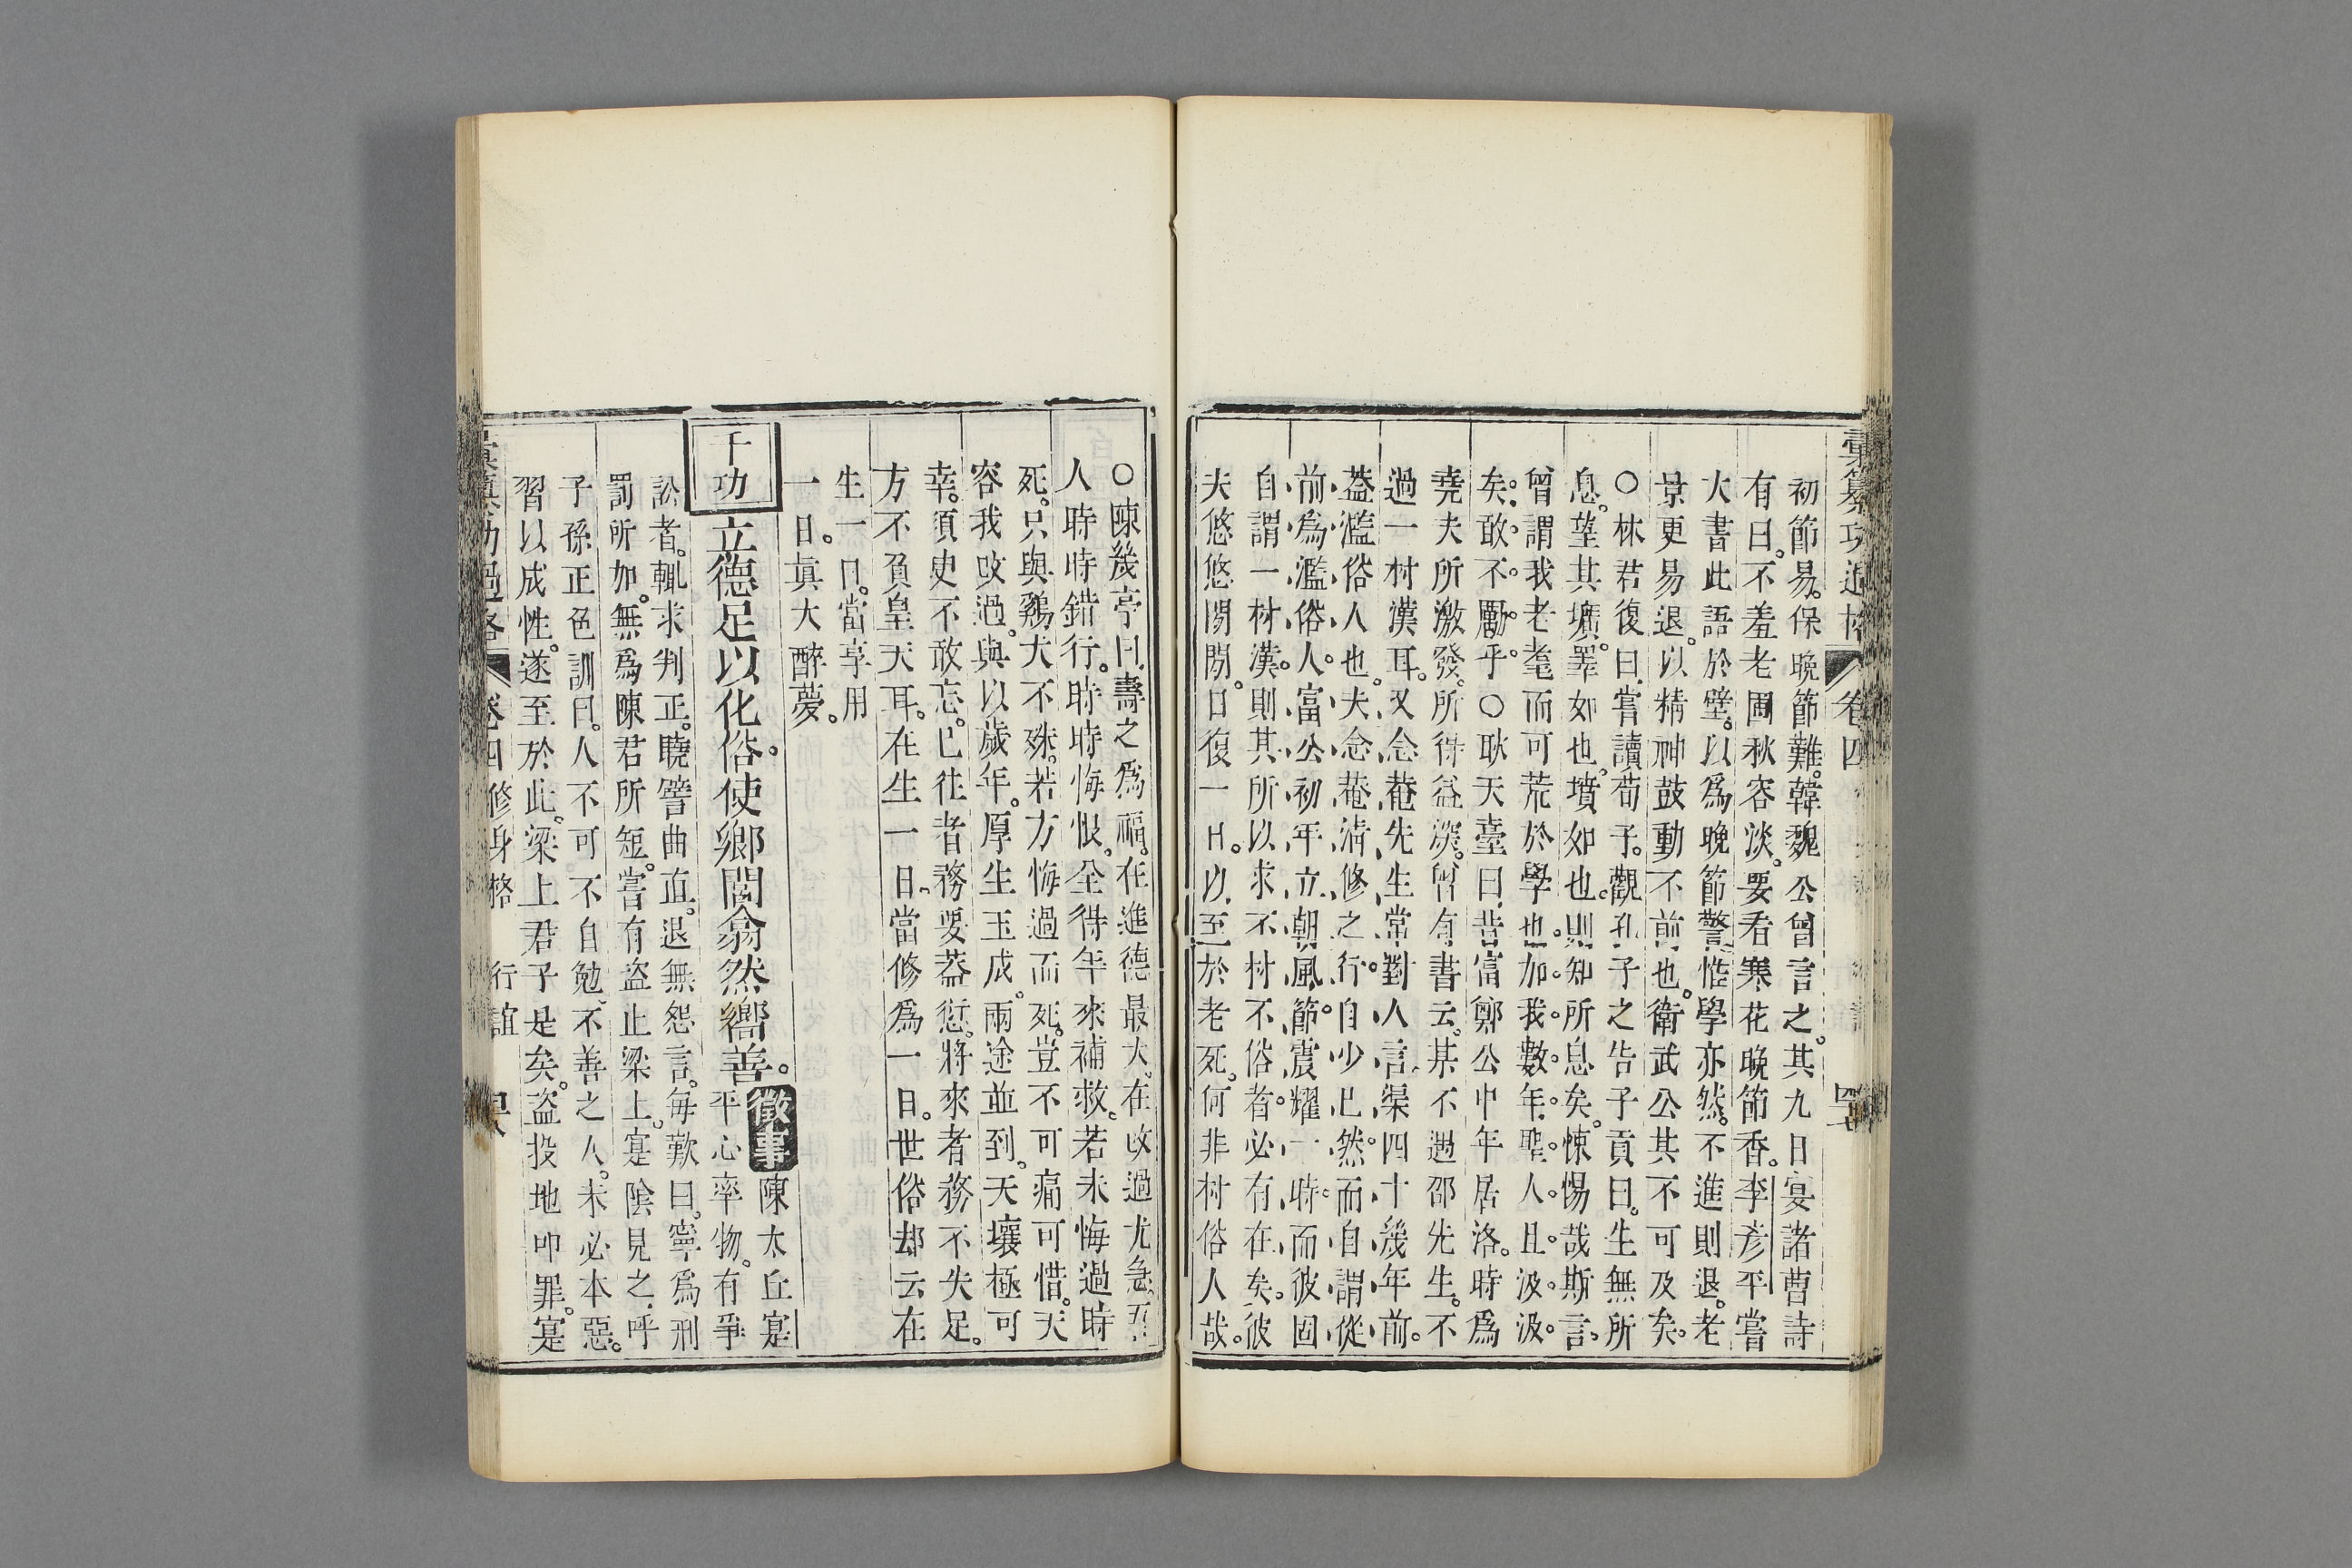 彙纂功過格 卷四
初節易。保晚節難。韓魏公曾言之。其九日宴諸曹詩
有曰。不羞老圃秋容淡。要看寒花晚節香。李彥平嘗
大書此語於壁。以爲晚節警。惟學亦然。不進則退。老
景更易退。以精神鼓動不前也。衛武公其不可及矣。
○林君復曰。嘗讀荀子。觀孔子之告子貢曰。生無所
息。望其壙。睪如也。墳如也。則知所息矣。悚惕哉斯言。
曾謂我老耄而可荒於學也。加我數年。聖人且汲汲
矣。敢不勵乎。○耿天臺曰。昔富鄭公中年居洛。時爲
堯夫所激發。所得益深。曾有書云。某不遇邵先生。不
過一村漢耳。又念菴先生常對人言渠四十幾年前。
葢濫俗人也。夫念菴淸修之行。自少已然。而自謂從
前爲濫俗人。富公初年立朝風節。震耀一時。而彼固
自謂一村漢。則其所以求不村不俗者。必有在矣。彼
夫悠悠閒閒。日復一日。以至於老死。何非村俗人哉。
○陳幾亭曰。壽之爲福。在進德最大。在改過尤急。吾
人時時錯行。時時悔恨。全得年來補救。若未悔過時
死。只與鷄犬不殊。若方悔過而死。豈不可痛可惜。天
容我改過。與以歲年。厚生玉成。兩途並到。天壤極可
幸。須臾不敢忘。已往者務要葢愆。將來者務不失足。
方不負皇天耳。在生一日。當修爲一日。世俗却云在
生一日。當享用
一日。眞大醉夢。
千功 立德足以化俗。使鄕閭翕然嚮善。 徵事 陳太丘寔
平心率物。有爭
訟者。輒求判正。曉譬曲直。退無怨言。每歎曰。寧爲刑
罰所加。無爲陳君所短。嘗有盜止梁上。寔陰見之。呼
子孫正色訓曰。人不可不自勉。不善之人。未必本惡。
習以成性。遂至於此。梁上君子是矣。盜投地叩罪。寔
彙纂功過格 卷四 修身格 行誼